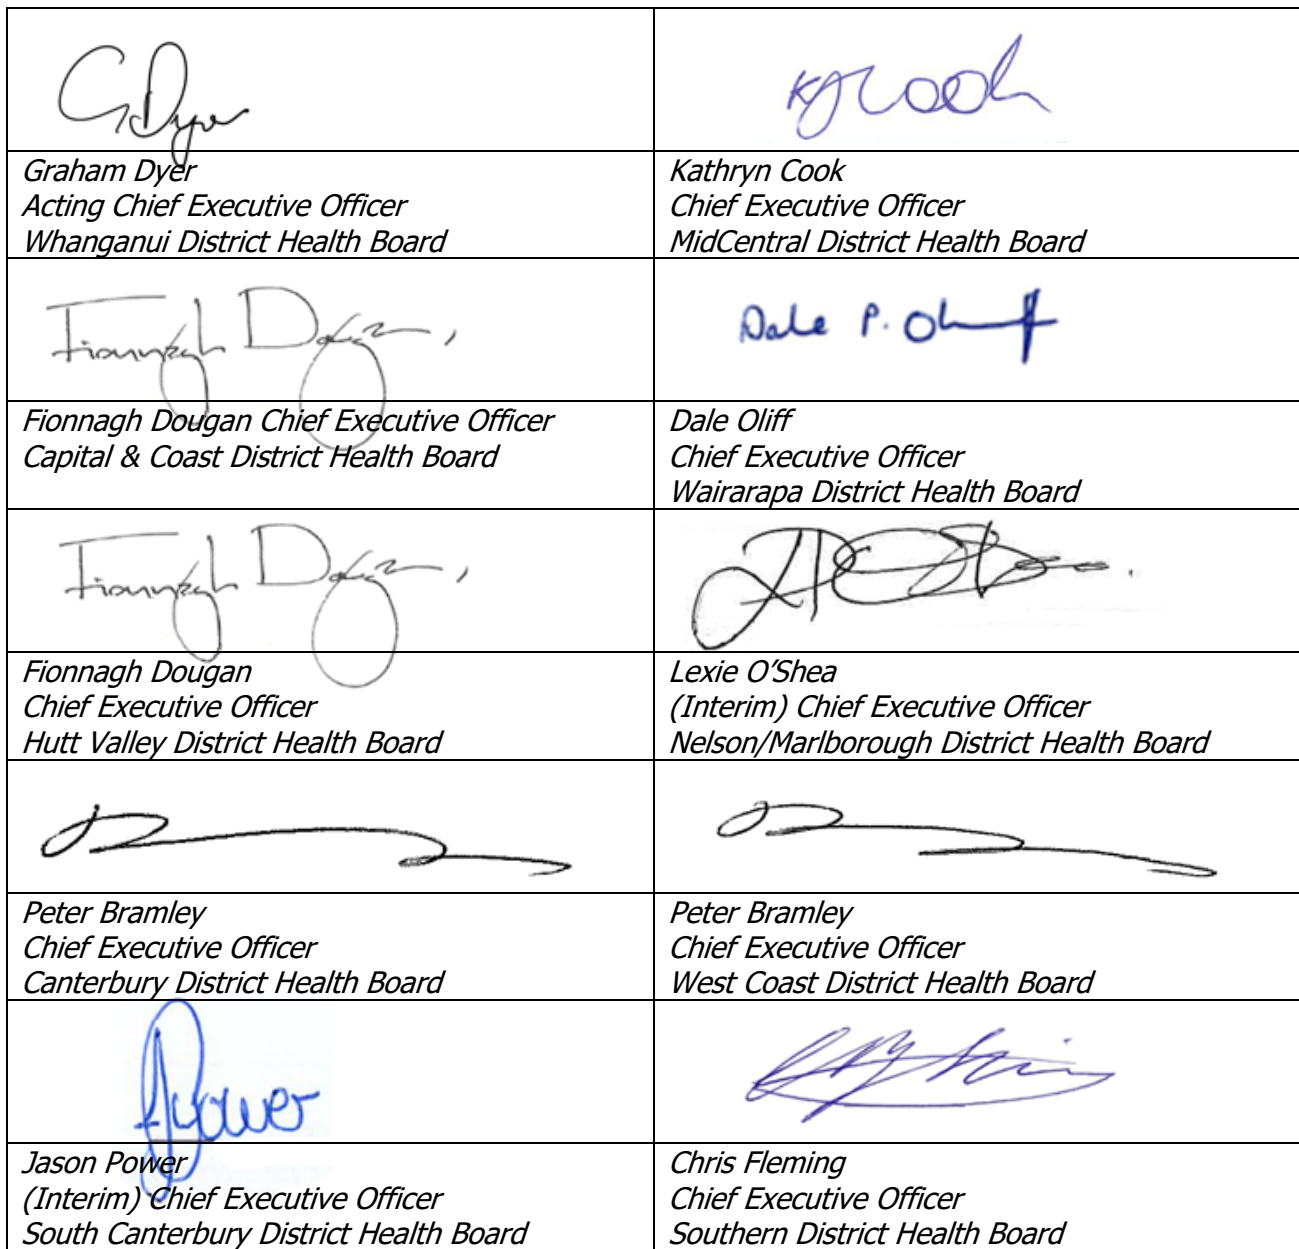 G Dyer
KJ Cook
Graham Dyer
Acting Chief Executive Officer
Whanganui District Health Board
Kathryn Cook
Chief Executive Officer
MidCentral District Health Board
Fionnagh Dougan,
Dale P. Oliff
Fionnagh Dougan Chief Executive Officer
Capital & Coast District Health Board
Dale Oliff
Chief Executive Officer
Wairarapa District Health Board
Fionnagh Dougan,
Fionnagh Dougan
Chief Executive Officer
Hutt Valley District Health Board
Lexie O’Shea
(Interim) Chief Executive Officer
Nelson/Marlborough District Health Board
Peter Bramley
Chief Executive Officer
Canterbury District Health Board
Peter Bramley
Chief Executive Officer
West Coast District Health Board
JPower
Jason Power
(Interim) Chief Executive Officer
South Canterbury District Health Board
Chris Fleming
Chief Executive Officer
Southern District Health Board